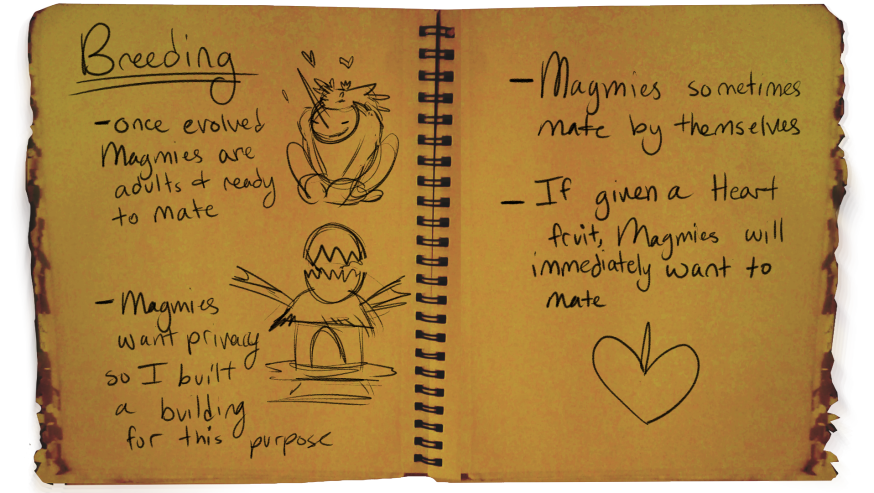 Breeding
- once evolved
Magmies are
adults & ready
to mate
- Magmies
want privacy
so I built
a building
for this purpose
- Magmies sometimes
mate by themselves
- If given a Heart
fruit, Magmies will
immediately want to
mate